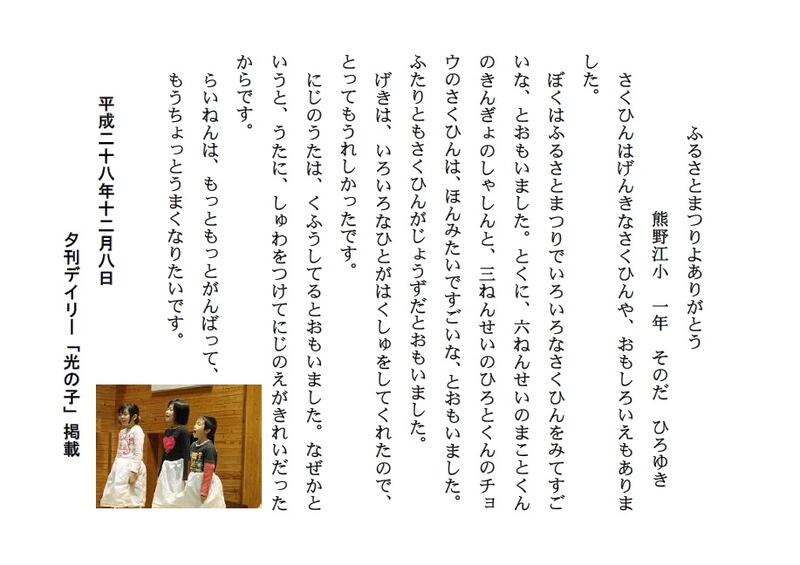 ふるさとまつりよありがとう
熊野江小　一年　そのだ　ひろゆき
さくひんはげんきなさくひんや、おもしろいえもありま
した。
ぼくはふるさとまつりでいろいろなさくひんをみてすご
いな、とおもいました。とくに、六ねんせいのまことくん
のきんぎょのしゃしんと、三ねんせいのひろとくんのチョ
ウのさくひんは、ほんみたいですごいな、とおもいました。
ふたりともさくひんがじょうずだとおもいました。
げきは、いろいろなひとがはくしゅをしてくれたので、
とってもうれしかったです。
にじのうたは、くふうしてるとおもいました。なぜかと
いうと、うたに、しゅわをつけてにじのえがきれいだった
からです。
らいねんは、もっともっとがんばって、
もうちょっとうまくなりたいです。
平成二十八年十二月八日
夕刊デイリー「光の子」掲載